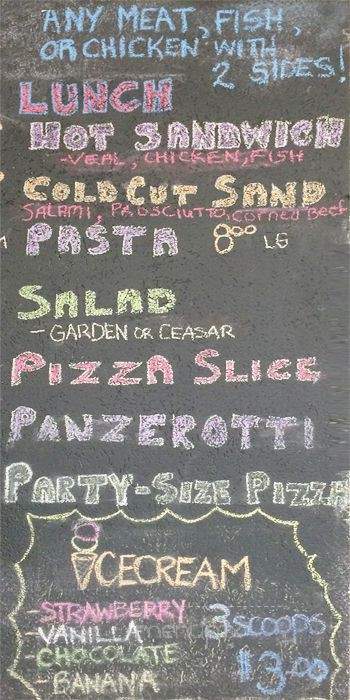 ANY MEAT, FISH,
OR CHICKEN WITH
2 SIDES!
LUNCH
HOT SANDWICH
-VEAL, CHICKEN, FISH
COLD CUT SAND
SALAMI, PROSCIUTTO, CORNED BEEF
PASTA 8⁰⁰ LG
SALAD
- GARDEN OR CEASAR
PIZZA SLICE
PANZEROTTI
PARTY-SIZE PIZZA
ICECREAM
-STRAWBERRY 3 SCOOPS
-VANILLA
-CHOCOLATE $3.00
-BANANA